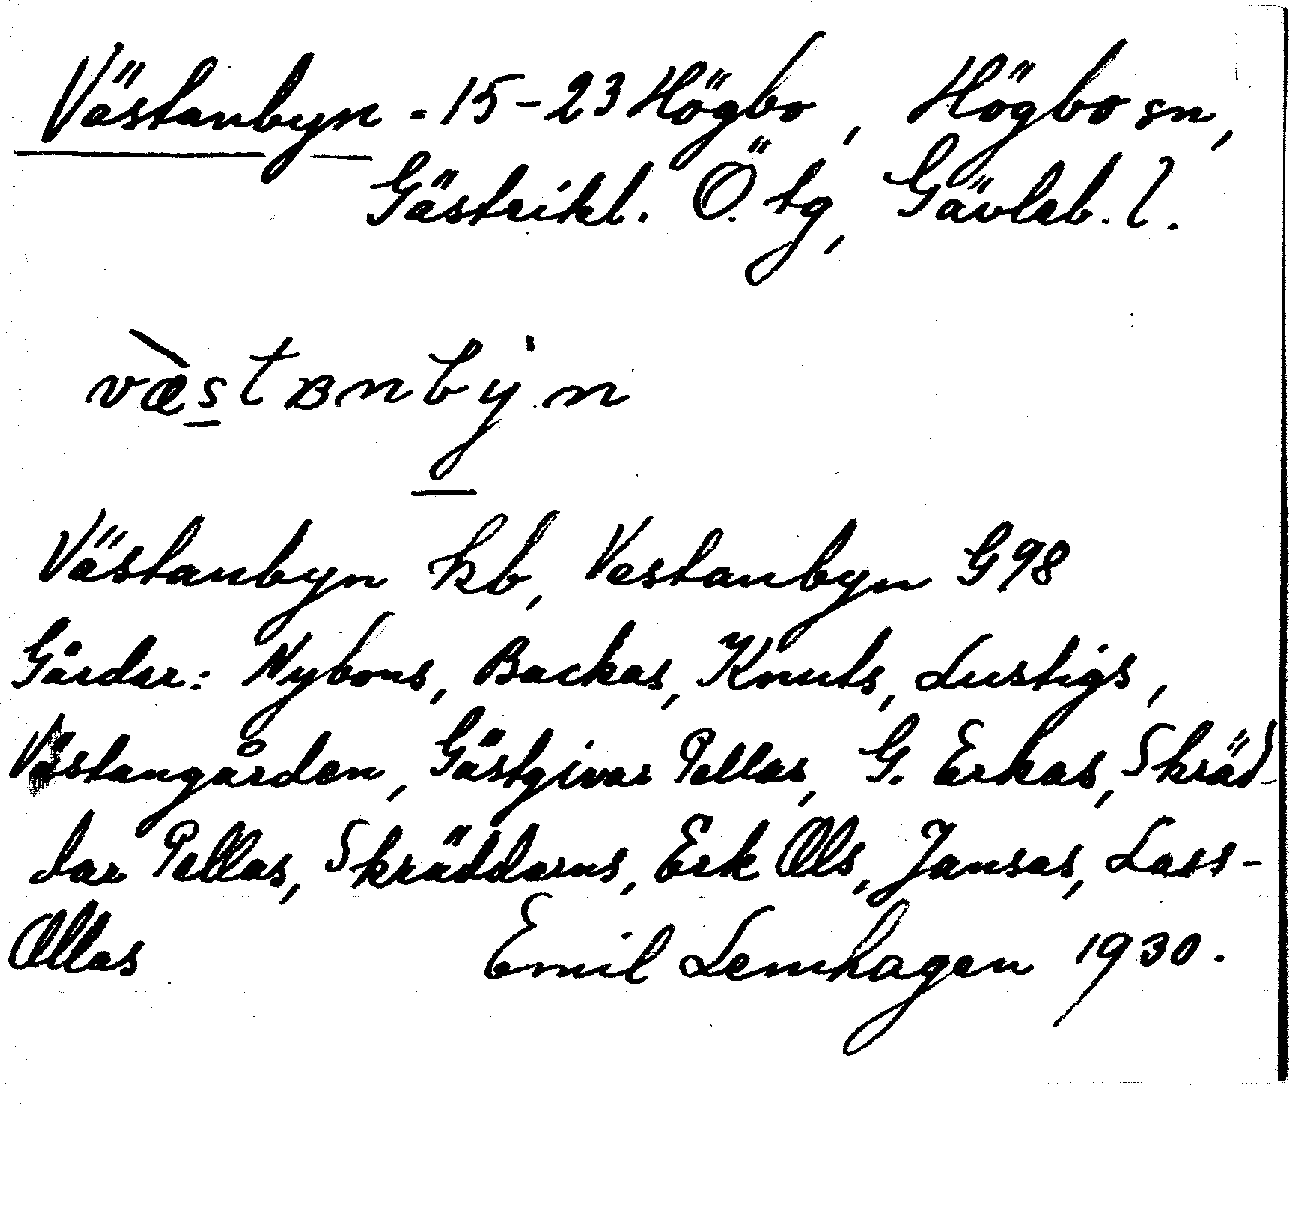 Västanbyn - 15-23 Högbo, Högbo sn,
Gästrikl. Ö. tg, Gävleb. l.
væ̀stʙnbyn
Västanbyn kb, Vestanbyn G98
Gårdar: Nybons, Backas, Knuts, Lustigs,
Västangården, Gästgivar Pellas, G. Erkas, Skräd
dar Pellas, Skräddarns, Erk Ols, Jansas, Lass-
Ollas Emil Lemhagen 1930.